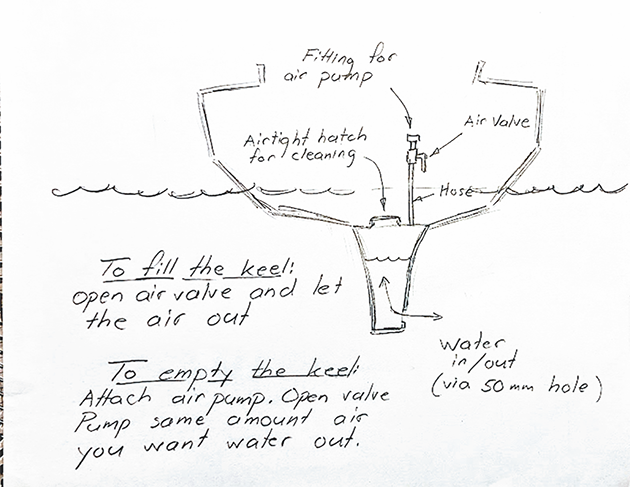 Fitting for
air pump
Air Valve
Airtight hatch
for cleaning
Hose
To fill the keel:
Open air valve and let
the air out
Water
in/out
(via 50 mm hole)
To empty the keel:
Attach air pump. Open valve
Pump same amount air
you want water out.